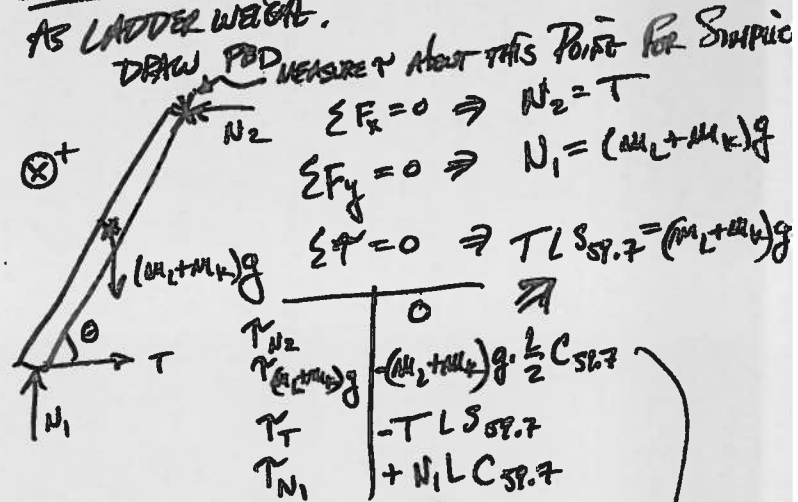 AS LADDER WEIGHT.
DRAW FBD MEASURE τ ABOUT THIS POINT FOR
N₂
ΣFₓ=0 ⇒ N₂=T
ΣF_y=0 ⇒ N₁=(m_L+m_K)g
Στ=0 ⇒ TLS₅₉.₇=(m_L+m_K)g
⊗⁺
(m_L+m_K)g
θ
T
N₁
τ_N₂ 0
τ_(m_L+m_K)g -(m_L+m_K)g·L/2 C₅₉.₇
τ_T -TLS₅₉.₇
τ_N₁ +N₁LC₅₉.₇